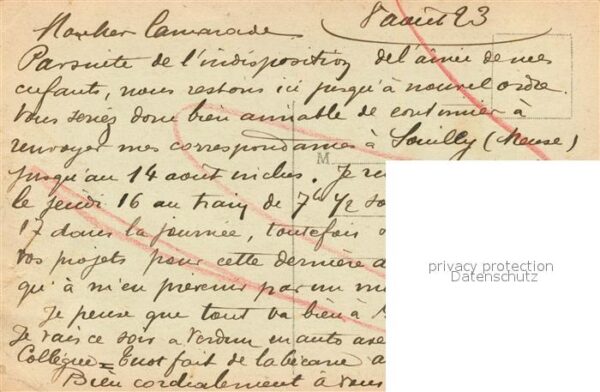 8 août 23
Mon cher Camarade
Par suite de l'indisposition de l'aînée de mes
enfants, nous restons ici jusqu'à nouvel ordre.
Vous seriez donc bien aimable de continuer à
renvoyer mes correspondances à Souilly (Meuse)
M
jusqu'au 14 août inclus. Je
le jeudi 16 au train de 7h 1/2
17 dans la journée, toutefois
vos projets pour cette dernière
qu'à m'en prévenir par un
privacy protection
Datenschutz
Je pense que tout va bien à
Je vais ce soir à Verdun en auto
Collègue = fait de la bécane
Bien cordialement à vous